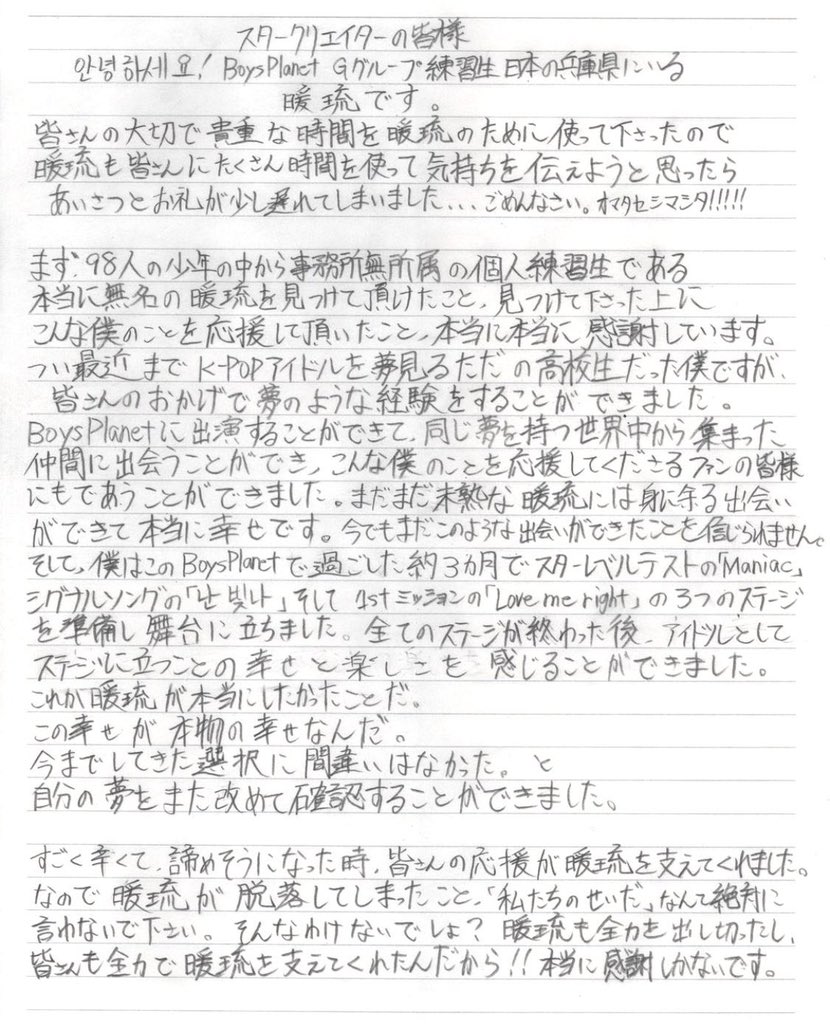 スタークリエイターの皆様
안녕하세요! BoysPlanet Gグループ練習生日本の兵庫県にいる
暖琉です。
皆さんの大切で貴重な時間を暖琉のために使って下さったので
暖琉も皆さんにたくさん時間を使って気持ちを伝えようと思ったら
あいさつとお礼が少し遅れてしまいました...ごめんなさい。オマタセシマシタ!!!!!
まず、98人の少年の中から事務所無所属の個人練習生である
本当に無名の暖琉を見つけて頂けたこと、見つけて下さった上に
こんな僕のことを応援して頂いたこと、本当に本当に感謝しています。
つい最近までK-POPアイドルを夢見るただの高校生だった僕ですが、
皆さんのおかげで夢のような経験をすることができました。
BoysPlanetに出演することができて、同じ夢を持つ世界中から集まった
仲間に出会うことができ、こんな僕のことを応援してくださるファンの皆様
にもであうことができました。まだまだ未熟な暖琉には身に余る出会い
ができて本当に幸せです。今でもまだこのような出会いができたことを信じられません。
そして、僕はこのBoysPlanetで過ごした約3カ月でスターレベルテストの「Maniac」
シグナルソングの「난 빛나」そして1stミッションの「Love me right」の3つのステージ
を準備し舞台に立ちました。全てのステージが終わった後、アイドルとして
ステージに立つことの幸せと楽しさを感じることができました。
これが暖琉が本当にしたかったことだ。
この幸せが本物の幸せなんだ。
今までしてきた選択に間違いはなかった。と
自分の夢をまた改めて確認することができました。
すごく辛くて、諦めそうになった時、皆さんの応援が暖琉を支えてくれました。
なので暖琉が脱落してしまったこと、「私たちのせいだ」なんて絶対に
言わないで下さい。そんなわけないでしょ?暖琉も全力を出し切ったし、
皆さんも全力で暖琉を支えてくれたんだから!!本当に感謝しかないです。